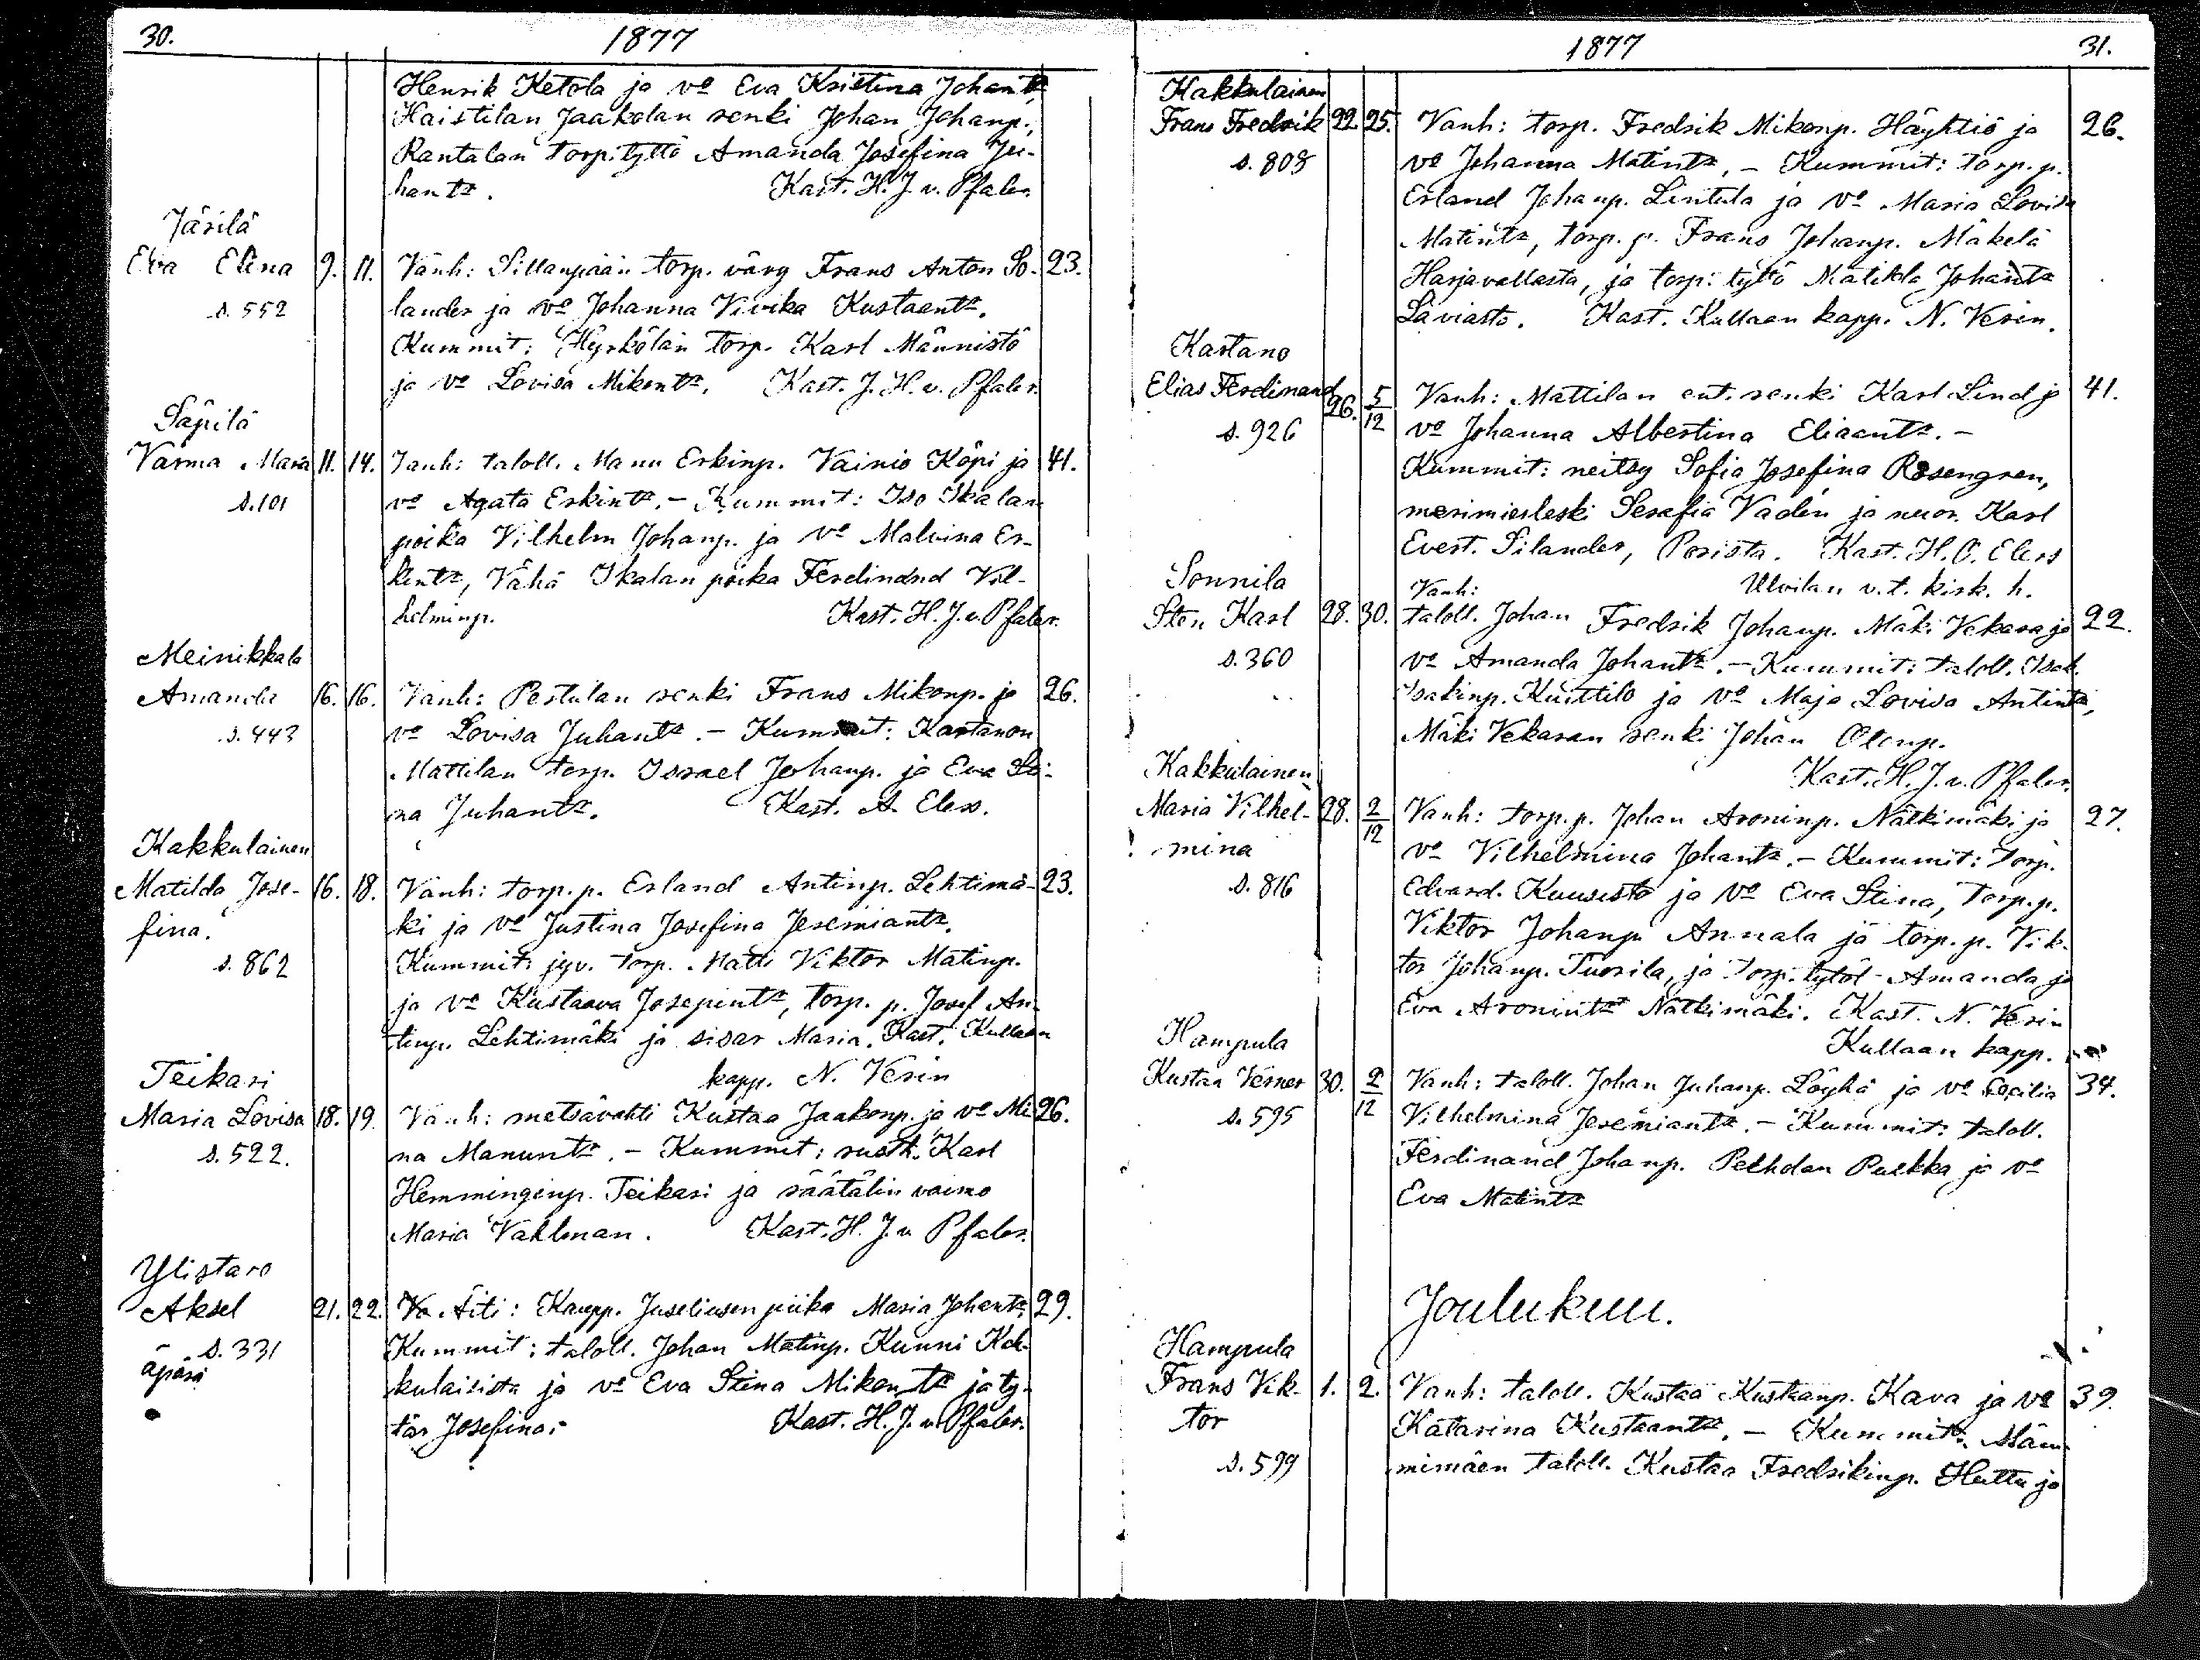 30.
1877
Henrik Ketola ja vo Eva Kristina Johantr,
Haistilan Jaakolan renki Johan Johanp.,
Rantalan torp. tyttö Amanda Josefina Ju-
hantr. Kast. H. J. v. Pfaler.
Järilä
Eva Elina 9. 11. Vanh: Sillanpään torp. väry Frans Anton So- 23.
s. 552 lander ja vo Johanna Vivika Kustaantr.
Kummit: Hyrkölän torp. Karl Männistö
ja vo Lovisa Mikontr. Kast. J. H. v. Pfaler.
Säpilä
Varma Maria 11. 14. Vanh: taloll. Manu Erkinp. Vainio Köpi ja 41.
s. 101 vo Agata Erkintr. - Kummit: Iso Ikalan
poika Vilhelm Johanp. ja vo Malvina Er-
kintr, Vähä Ikalan poika Ferdinand Vil-
helminp. Kast. H. J. v. Pfaler.
Meinikkala
Amanda 16. 16. Vanh: Pertulan renki Frans Mikonp. ja 26.
s. 443 vo Lovisa Juhantr. - Kummit: Kartanon
Mattilan torp. Israel Johanp. ja Eva Sti-
na Juhantr. Kast. A. Elers.
Kakkulainen
Matilda Jose- 16. 18. Vanh: torp. p. Erland Antinp. Lehtimä- 23.
fina. ki ja vo Justina Josefina Jeremiantr.
s. 862 Kummit: jyv. torp. Matti Viktor Matinp.
ja vo Kustaava Josepintr, torp. p. Josef An-
tinp. Lehtimäki ja sisar Maria. Kast. Kullaan
kapp. N. Verin
Teikari
Maria Lovisa 18. 19. Vanh: metsävahti Kustaa Jaakonp. ja vo Mi- 26.
s. 522. na Manuntr. - Kummit: rusth. Karl
Hemminginp. Teikari ja räätälin vaimo
Maria Vahlman. Kast. H. J. v. Pfaler.
Ylistaro
Aksel 21. 22. Äiti: Kaupp. Juseliusen piika Maria Johantr. 29.
s. 331 Kummit: taloll. Johan Matinp. Kunni Kak-
äpärä kulaisista ja vo Eva Stina Mikontr ja ty-
tär Josefina. Kast. H. J. v. Pfaler.
1877
31.
Kakkulainen
Frans Fredrik 22. 25. Vanh: torp. Fredrik Mikonp. Häyhtiö ja 26.
s. 808 vo Johanna Matintr, - Kummit: torp. p.
Erland Johanp. Lintula ja vo Maria Lovisa
Matintr, torp. p. Frans Johanp. Mäkelä
Harjavallasta, ja torp: tyttö Matilda Johantr
Laviasta. Kast. Kullaan kapp. N. Verin.
Kartano
Elias Ferdinand 26. 5/12 Vanh: Mattilan ent. renki Karl Lind ja 41.
s. 926 vo Johanna Albertina Eliaantr. -
Kummit: neitsy Sofia Josefina Rosengren,
merimiesleski Serafia Vadén ja nuor. Karl
Evert. Silander, Porista. Kast. H. O. Elers
Ulvilan v. t. kirk. h.
Sonnila Vanh:
Sten Karl 28. 30. taloll. Johan Fredrik Johanp. Mäki Vekara ja 22.
s. 360 vo Amanda Johantr. - Kummit: taloll. Isak
Isakinp. Kurttila ja vo Maja Lovisa Antintr,
Mäki Vekaran renki Johan Olenp.
Kast. H. J. v. Pfaler.
Kakkulainen
Maria Vilhel- 28. 2/12 Vanh: torp. p. Johan Aroninp. Nätkimäki ja 27.
mina vo Vilhelmina Johantr. - Kummit: torp.
s. 816 Edvard. Kuusisto ja vo Eva Stina, torp. p.
Viktor Johanp. Annala ja torp. p. Vik-
tor Johanp. Tuorila, ja torp. tytöt - Amanda ja
Eva Aronintr Nätkimäki. Kast. N. Verin
Kullaan kapp.
Hampula
Kustaa Verner 30. 2/12 Vanh: taloll. Johan Juhanp. Löyhä ja vo Cecilia 34.
s. 595 Vilhelmina Jeremiantr. - Kummit: taloll.
Ferdinand Johanp. Palkka ja vo
Eva Matintr
Joulukuu.
Hampula
Frans Vik- 1. 2. Vanh: taloll. Kustaa Kustaanp. Kava ja vo 39.
tor Katarina Kustaantr. - Kummit: Mäm-
s. 599 mimäen taloll. Kustaa Fredrikinp. Huttu ja